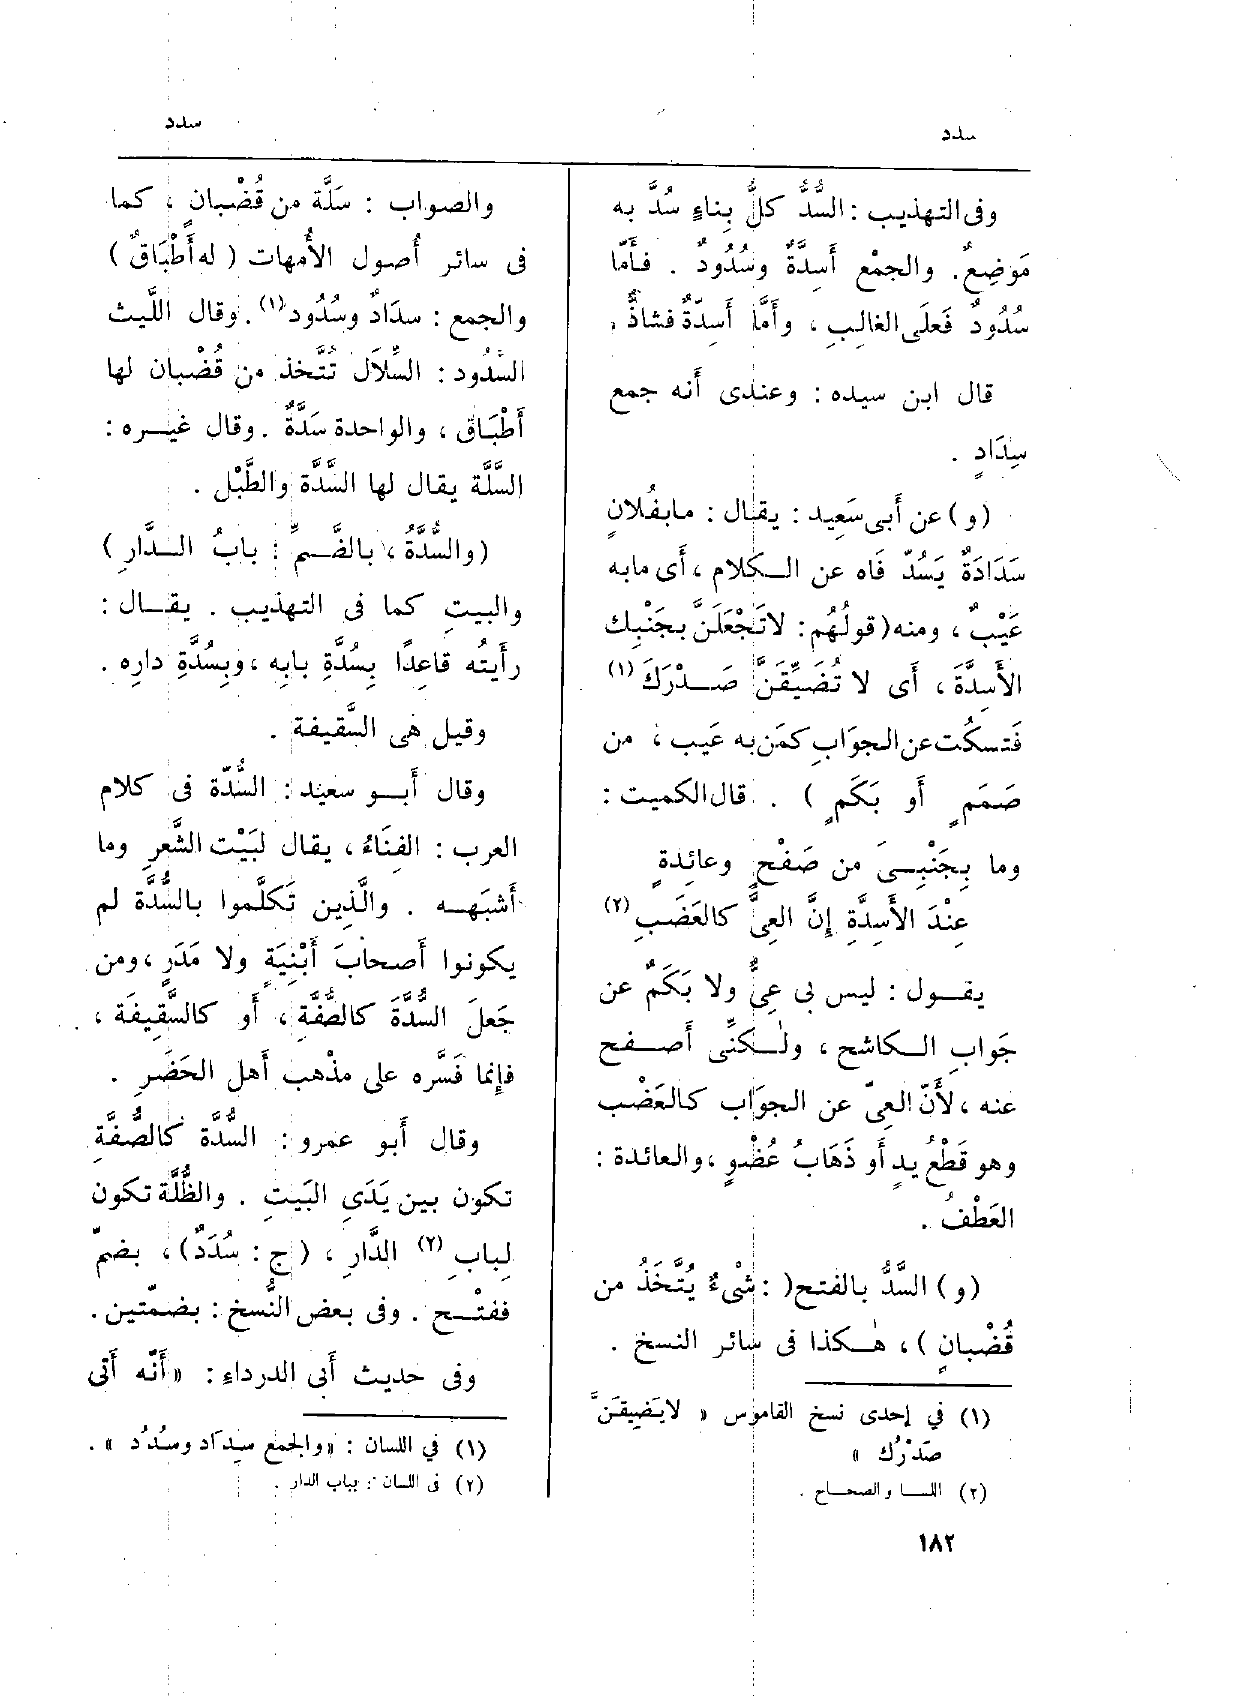 سدد
سدد
وفى التهذيب : السُّدُّ كلُّ بِناءٍ سُدَّ به
مَوْضِعٌ. والجمْع أَسِدَّةٌ وسُدُودٌ . فأَمَّا
سُدُودٌ فَعلَى الغالِبِ ، وأَمَّا أَسِدَّةٌ فشاذٌّ ،
قال ابن سيده : وعندى أَنه جمع
سِدَادٍ .
(و) عن أَبى سَعِيد : يقال : ما بفُلانٍ
سَدَادَةٌ يَسُدّ فَاه عن الكلام ، أَى ما به
عَيْبٌ ، ومنه ( قولُهُم : لا تَجْعَلَنَّ بجَنْبِك
الأَسِدَّةَ ، أَى لا تُضَيِّقَنَّ صَدْرَكَ (١)
فَتسكُت عن الجوَابِ كمَن به عَيب ، من
صَمَمٍ أَو بَكَمٍ ) . قال الكميت :
وما بِجَنْبِىَ من صَفْحٍ وعائدةٍ
عِنْدَ الأَسِدَّةِ إِنَّ العِىَّ كالعَضَبِ (٢)
يقول : ليس بى عِىٌّ ولا بَكَمٌ عن
جَوابِ الكاشح ، ولٰكنِّى أَصفح
عنه ، لأَنّ العِىّ عن الجوَاب كالعَضْب
وهو قَطْعُ يدٍ أَو ذَهَابُ عُضْوٍ ، والعائدة :
العَطْفُ .
(و) السَّدُّ بالفتح( : شْىءٌ يُتَّخَذ من
قُضْبانٍ ) ، هٰكذا فى سائر النسخ .
(١) في إحدى نسخ القاموس « لا يَضِيقَنَّ
صَدْرُك »
(٢) اللسا والصحاح .
١٨٢
والصواب : سَلَّة من قُضْبانٍ ، كما
فى سائر أُصول الأُمهات ( له أَطْبَاقٌ )
والجمع : سدَادٌ وسُدُود (١) . وقال اللَّيث
السُّدُود : السِّلاَل تُتَّخذ من قُضْبان لها
أَطْبَاق ، والواحدة سَدَّةٌ . وقال غيره :
السَّلَّة يقال لها السَّدَّة والطَّبْل .
(والسُّدَّةُ ، بالضَّمِّ : بابُ الدَّارِ )
والبيتِ كما فى التهذيب . يقال :
رأَيتُه قاعِدًا بِسُدَّةِ بابِه ، وبِسُدَّةِ دارِه .
وقيل هى السَّقيفة .
وقال أَبو سعيد : السُّدّة فى كلام
العرب : الفِنَاءُ ، يقال لبَيْت الشَّعرِ وما
أَشبَهه . والَّذِين تَكلَّموا بالسُّدَّة لم
يكونوا أَصحابَ أَبْنِيَةٍ ولا مَدَرٍ ، ومن
جَعلَ السُّدَّةَ كالصُّفَّة ، أَو كالسَّقِيفَة ،
فإِنما فَسَّره على مذهب أَهل الحَضَرِ .
وقال أَبو عمرو : السُّدَّة كالصُّفَّةِ
تكون بين يَدَىِ البَيتِ . والظُّلَّة تكون
لِبابِ (٢) الدَّارِ ، ( ج : سُدَدٌ) ، بضمّ
ففتْح . وفى بعض النُّسخ : بضمّتين .
وفى حديث أَبى الدرداءِ : « أَنَّه أَتى
(١) في اللسان : «والجمع سِدَاد وسُدُد » .
(٢) فى اللسان : بباب الدار .